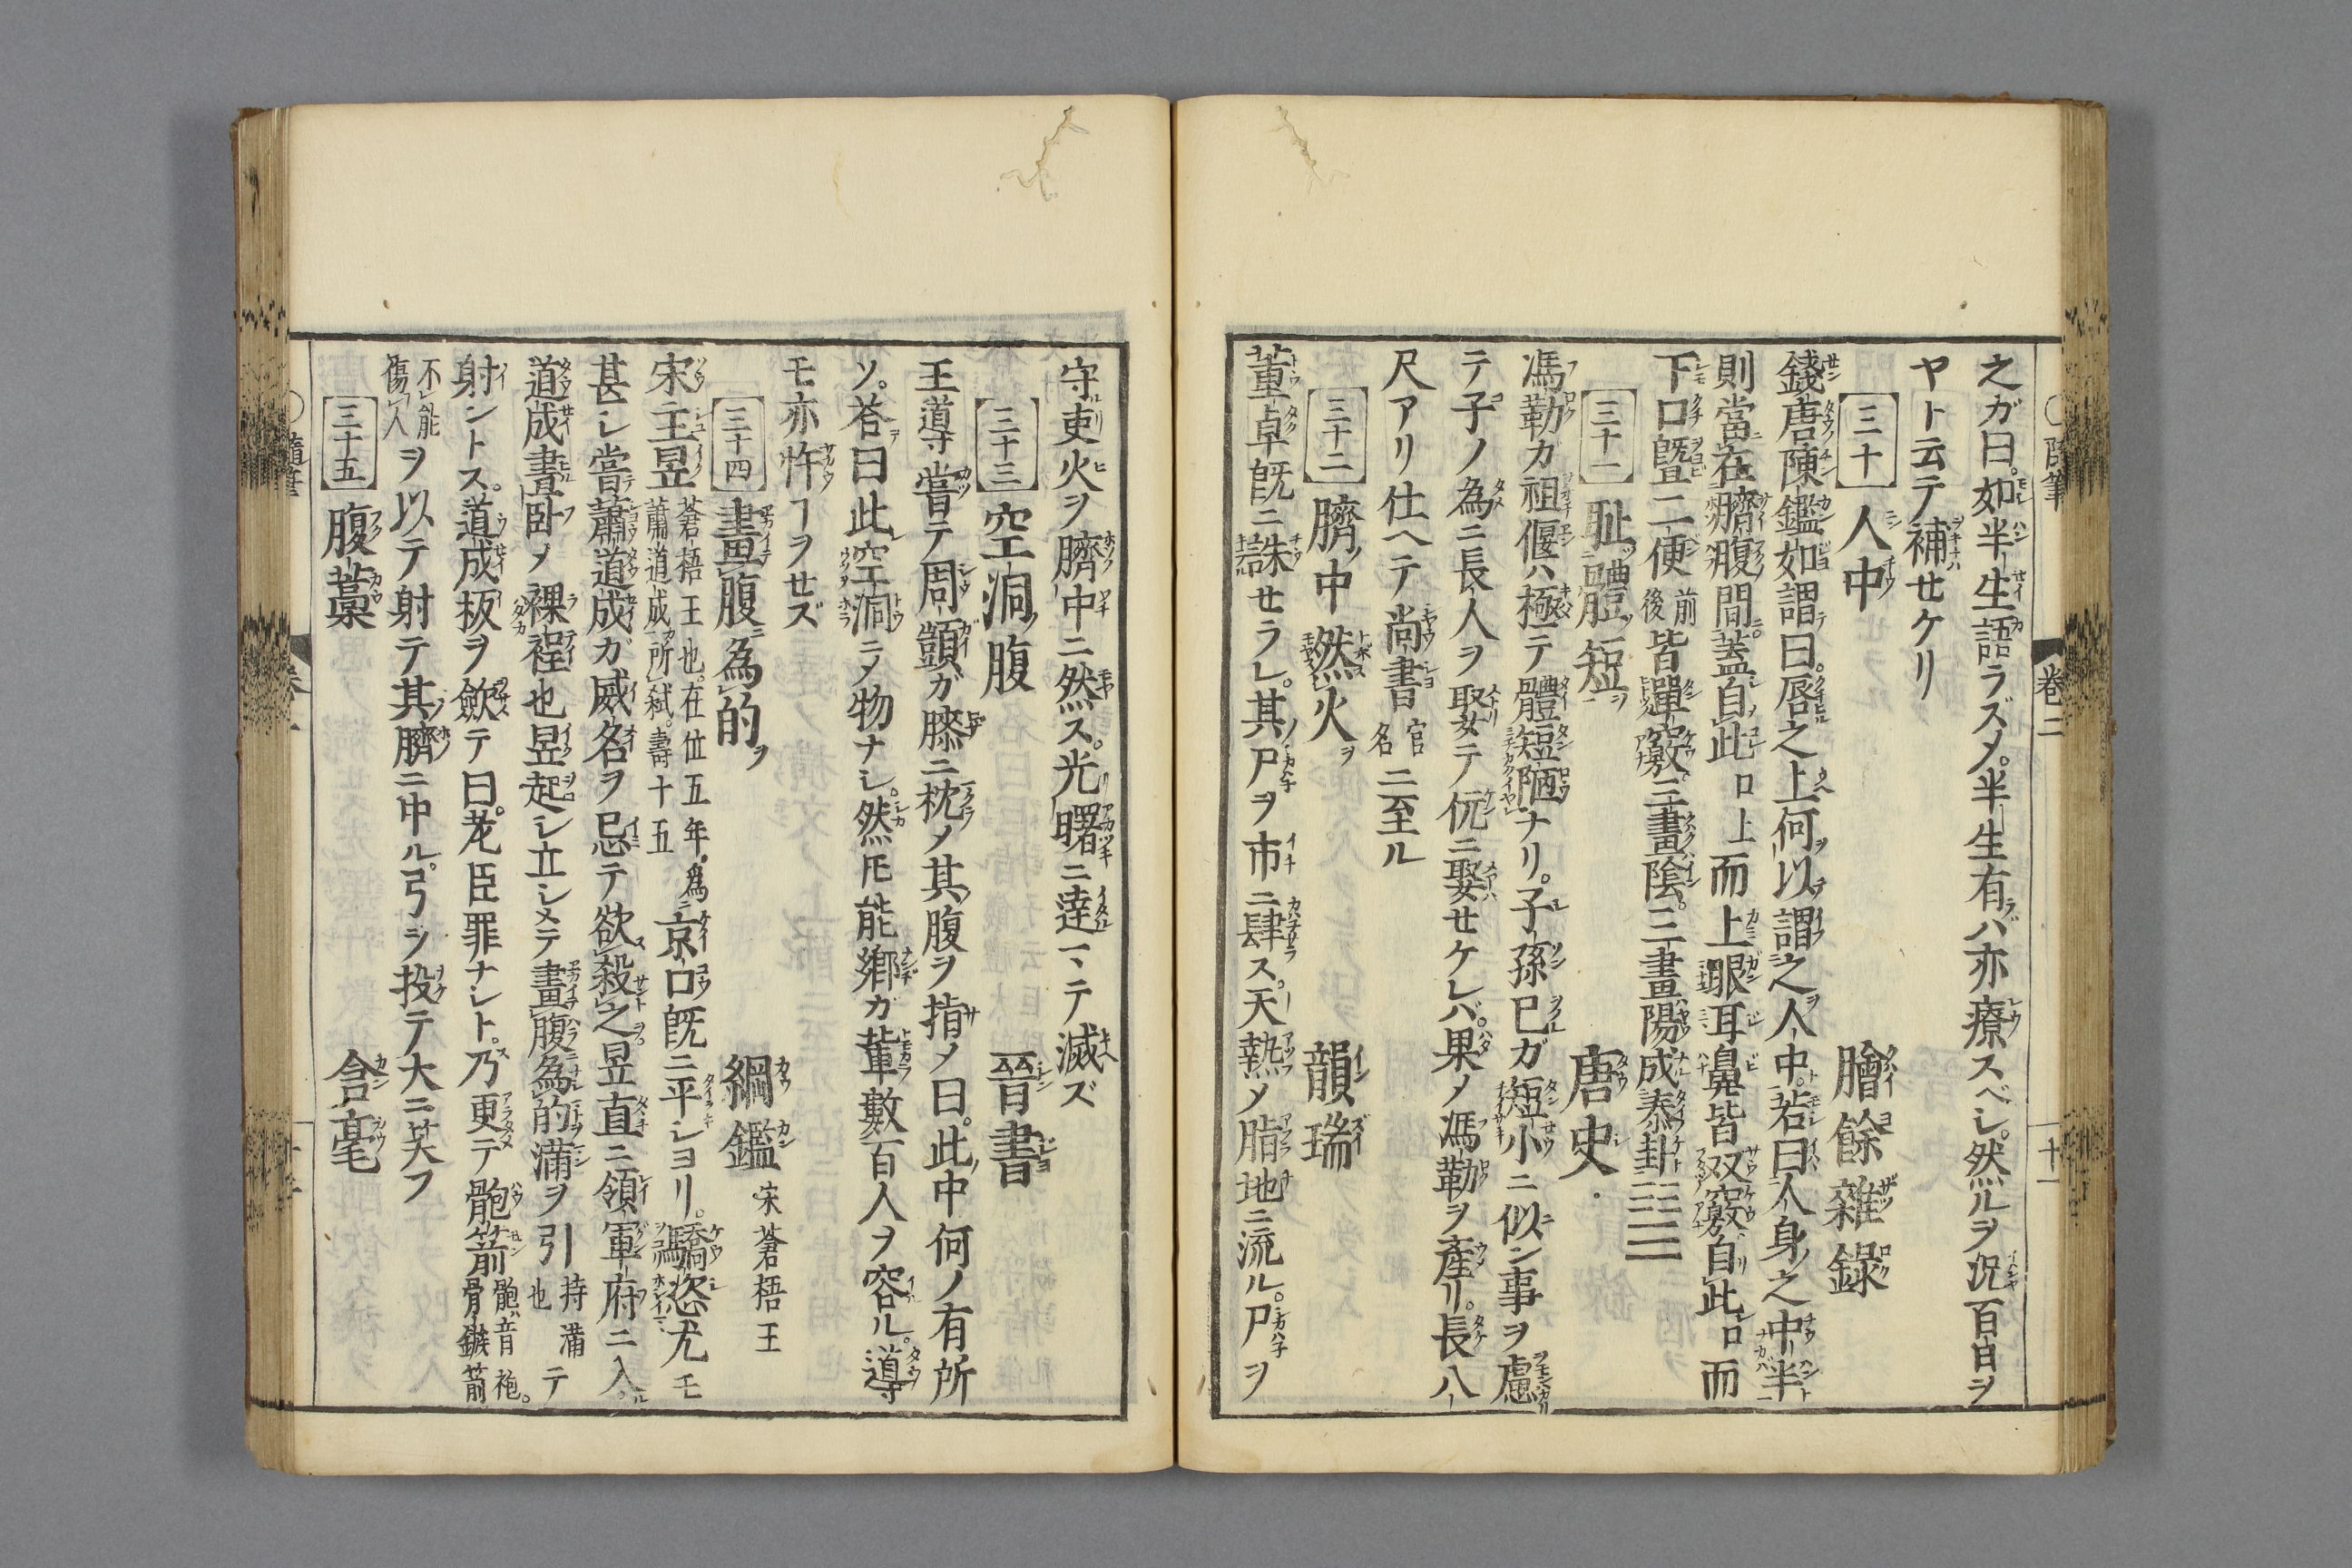 之ガ曰。如半生語ラズメ。半生有ラバ亦療スベシ。然ルヲ況百由ヲ
ヤト云テ補セケリ
三十 人中 膾餘雜録
錢唐陳鑑如謂曰。唇之上何以謂之人中。若曰人身之中半
則當在臍腹間。蓋自此口上而上眼耳鼻皆双竅。自此口而
下口曁二便前後皆單竅。三畫陰。三畫陽。成泰卦☷☰
三十一 耻體短 唐史
馮勒カ祖偃ハ極テ體短陋ナリ。子孫已ガ短小ニ似ン事ヲ慮
テ子ノ為ニ長人ヲ娶テ伉ニ娶セケレバ。果メ馮勒ヲ産リ。長八
尺アリ仕ヘテ尚書官名ニ至ル
三十二 臍中燃火 韻瑞
董卓既ニ誅セラレ。其尸ヲ市ニ肆ス。天熱メ脂地ニ流ル。尸ヲ
守吏火ヲ臍中ニ然ス。光曙ニ達ーヽテ滅ズ
三十三 空洞腹 晉書
王導嘗テ周顗カ膝ニ枕メ其腹ヲ指メ曰。此中何ノ有所
ソ。荅曰此空洞ニメ物ナシ。然𪜈能郷ガ輩數百人ヲ容ル。導
モ亦忤ヿヲセズ
三十四 畫腹為的 綱鑑 宋蒼梧王
宋主昱蒼梧王也。在位五年。為蕭道成所弑。壽十五京口既ニ平シヨリ。驕恣尤モ
甚シ嘗蕭道成ガ威名ヲ忌テ欲殺之。昱直ニ領軍府ニ入。
道成晝臥メ裸裎也昱起シ立シメテ畫腹為的滿ヲ引持滿也テ
射ントス。道成板ヲ斂テ曰。老臣罪ナシト。乃更テ骲箭骲ハ音袍。骨鏃箭
不能傷人ヲ以テ射テ其臍ニ中ル。弓ヲ投テ大ニ笑フ
三十五 腹藁 含毫
〇隨筆 卷二 十一